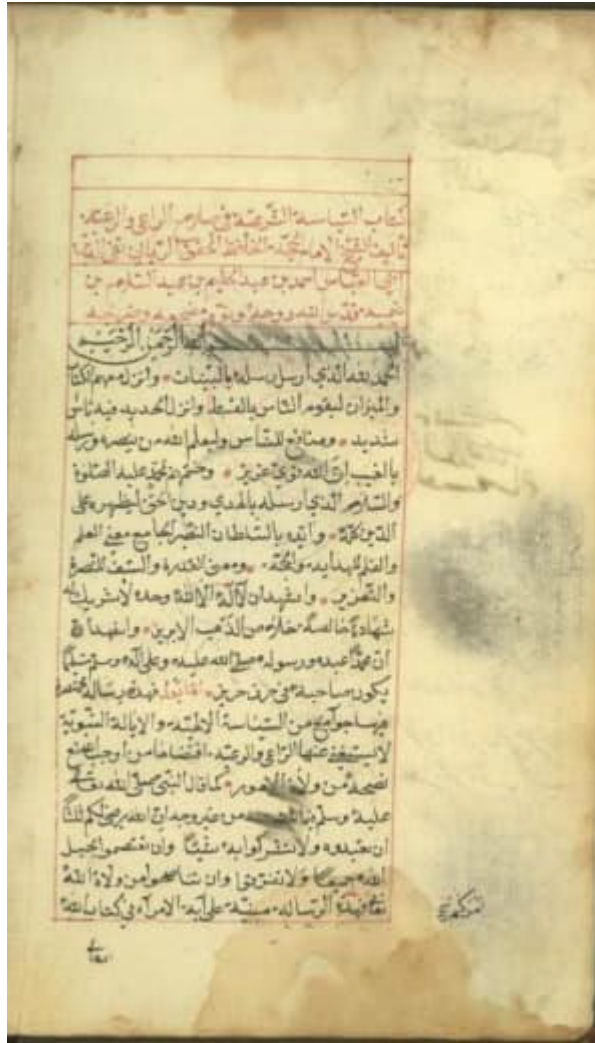 كتاب السياسة الشرعية في صلاح الراعي والرعية
تأليف الشيخ الامام الحافظ المحقق الرباني تقي الدين
ابي العباس احمد بن عبد الحليم بن عبد السلام بن
تيمية قدس الله روحه ونور ضريحه
بسم الله الرحمن الرحيم
الحمد لله الذي ارسل رسله بالبينات وانزل معهم الكتاب
والميزان ليقوم الناس بالقسط وانزل الحديد فيه باس
شديد ومنافع للناس وليعلم الله من ينصره ورسله
بالغيب ان الله قوي عزيز وختمهم بمحمد عليه الصلوة
والسلام الذي ارسله بالهدى ودين الحق ليظهره على
الدين كله وايده بالسلطان النصير الجامع معنى العلم
والقلم للهداية والحجة ومعنى القدرة والسيف للنصرة
والتعزير واشهد ان لا اله الا الله وحده لا شريك له
شهادة خالصة خلاص الذهب الابريز واشهد
ان محمدا عبده ورسوله صلى الله عليه وعلى اله وسلم تسليما
يكون صاحبه في حرز حريز اما بعد فهذه رسالة مختصرة
فيها جوامع من السياسة الالهية والايالة النبوية
لا يستغني عنها الراعي والرعية اقتضاها من اوجب الله
نصحه من ولاة الامور كما قال النبي صلى الله تعالى
عليه وسلم فيما ثبت عنه من غير وجه ان الله يرضى لكم ثلاثا
ان تعبدوه ولا تشركوا به شيئا وان تعتصموا بحبل
الله جميعا ولا تفرقوا وان تناصحوا من ولاه الله
فهذه الرسالة مبنية على اية الامراء في كتاب الله
تعالى